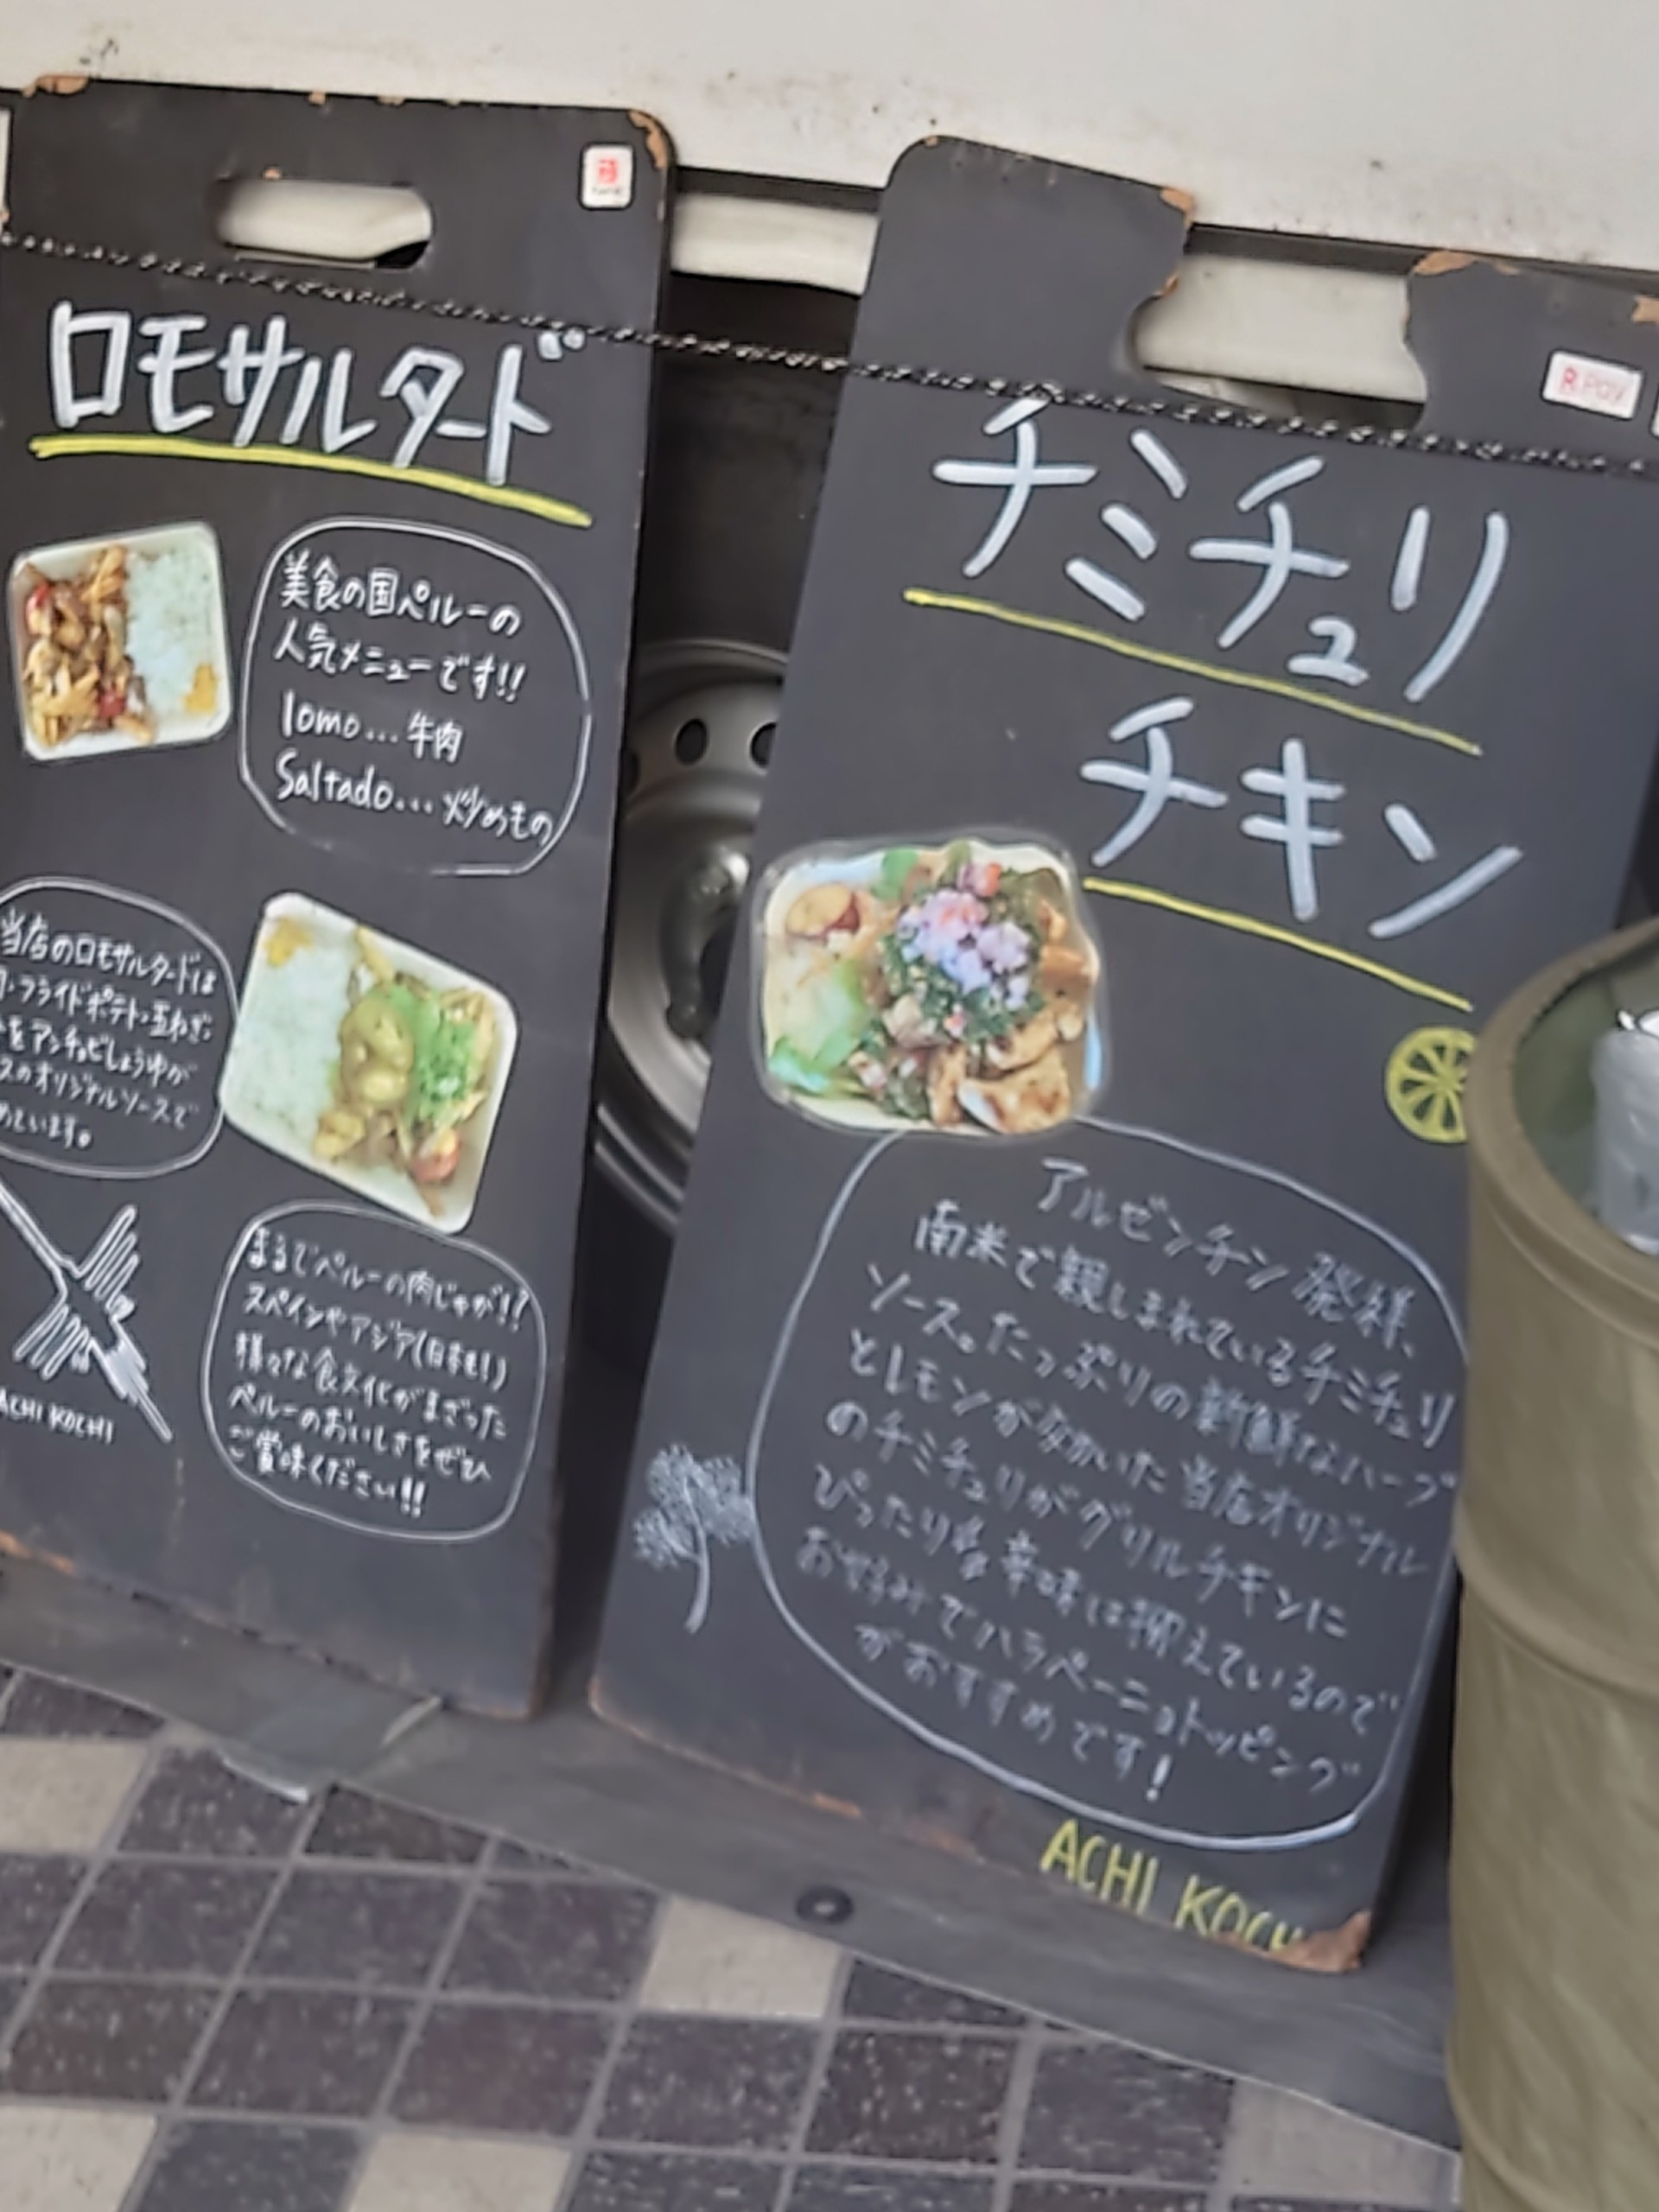 ロモサルタード
美食の国ペルーの
人気メニューです!!
lomo...牛肉
Saltado...炒めもの
当店のロモサルタードは
・フライドポテト・玉ねぎ
をアンチョビしょうゆが
スのオリジナルソースで
めています。
まるでペルーの肉じゃが!?
スペインやアジア(日本も!)
様々な食文化がまざった
ペルーのおいしさをぜひ
ご賞味ください!!
ACHI KOCHI
チミチュリ
チキン
アルゼンチン発祥、
南米で親しまれているチミチュリ
ソース。たっぷりの新鮮なハーブ
とレモンが効いた当店オリジナル
のチミチュリがグリルチキンに
ぴったり 辛味は抑えているので
お好みでハラペーニョトッピング
がおすすめです!
ACHI KOCH
R PAY